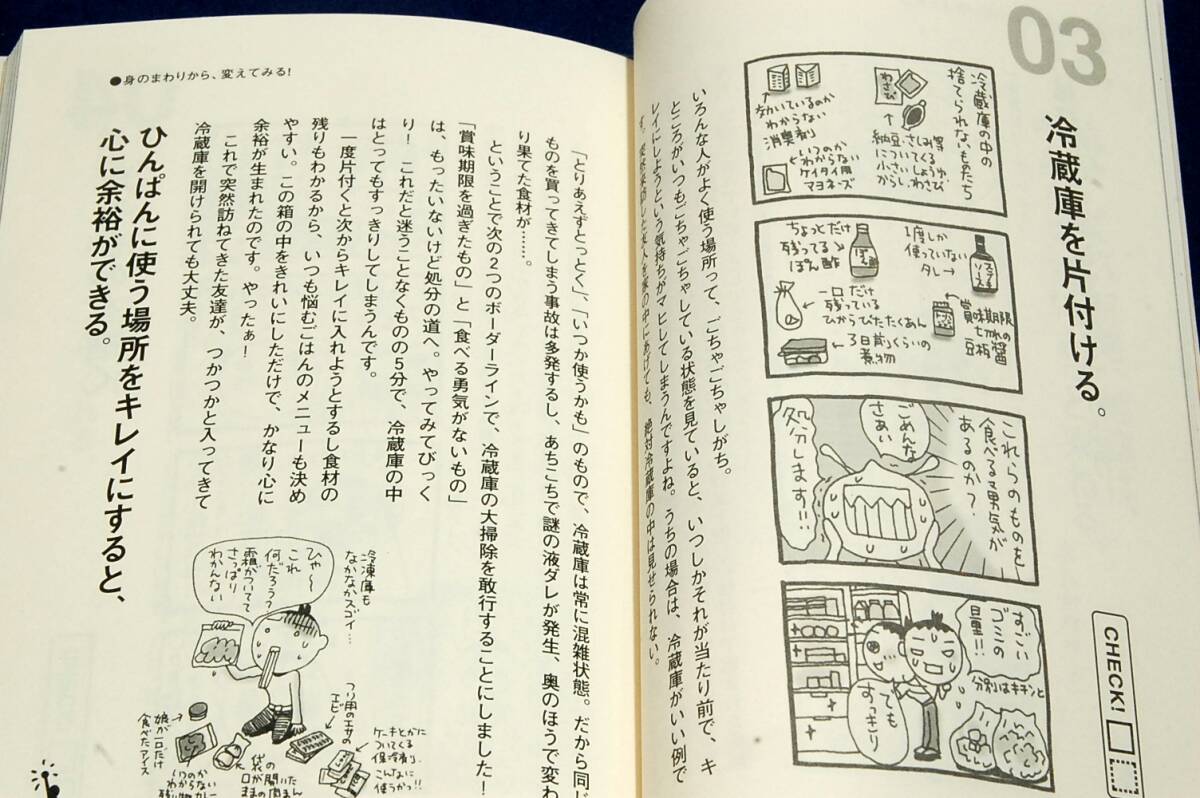 03
冷蔵庫を片付ける。
CHECK!
冷蔵庫の中の
捨てられないものたち
わさび
納豆・さしみ等
についてくる
小さいしょうゆ
からし、わさび
効いているのか
わからない
消臭剤
いつのか
わからない
ケイタイ用
マヨネーズ
1度しか
使っていない
タレ→
ソース
賞味期限
切れの
豆板醤
ちょっとだけ
残ってる
ぽん酢
一口だけ
残っている
ひからびたたくあん
3日前くらいの
煮物
これらのものを
食べる勇気が
あるのか?
ごめんな
さあい
処分します!!
すごい
ゴミの
量!!
分別はキチンと
でも
すっきり
いろんな人がよく使う場所って、ごちゃごちゃしがち。
ところがいつもごちゃごちゃしている状態を見ていると、いつしかそれが当たり前で、キ
レイにしようという気持ちがマヒしてしまうんですよね。うちの場合は、冷蔵庫がいい例で
す。突然来訪した友人を家の中にあげても、絶対冷蔵庫の中は見せられない。
「とりあえずとっとく」、「いつか使うかも」のもので、冷蔵庫は常に混雑状態。だから同じ
ものを買ってきてしまう事故は多発するし、あちこちで謎の液ダレが発生、奥のほうで変わ
り果てた食材が……。
ということで次の2つのボーダーラインで、冷蔵庫の大掃除を敢行することにしました!
「賞味期限を過ぎたもの」と「食べる勇気がないもの」
は、もったいないけど処分の道へ。やってみてびっく
り! これだと迷うことなくものの5分で、冷蔵庫の中
はとってもすっきりしてしまうんです。
一度片付くと次からキレイに入れようとするし食材の
残りもわかるから、いつも悩むごはんのメニューも決め
やすい。この箱の中をきれいにしただけで、かなり心に
余裕が生まれたのです。やったぁ!
これで突然訪ねてきた友達が、つかつかと入ってきて
冷蔵庫を開けられても大丈夫。
ひんぱんに使う場所をキレイにすると、
心に余裕ができる。
●身のまわりから、変えてみる!
冷凍庫も
なかなかスゴイ…
ひゃ〜
これ
何だろう?
霜がついてて
さっぱり
わかんない
つり用のエサの
エビ
ケーキとかに
ついてくる
保冷剤
こんなに
使うかっ!!
袋の
口が開いた
ままの肉まん
いつのか
わからない
残り物カレー
娘が一口だけ
食べたアイス